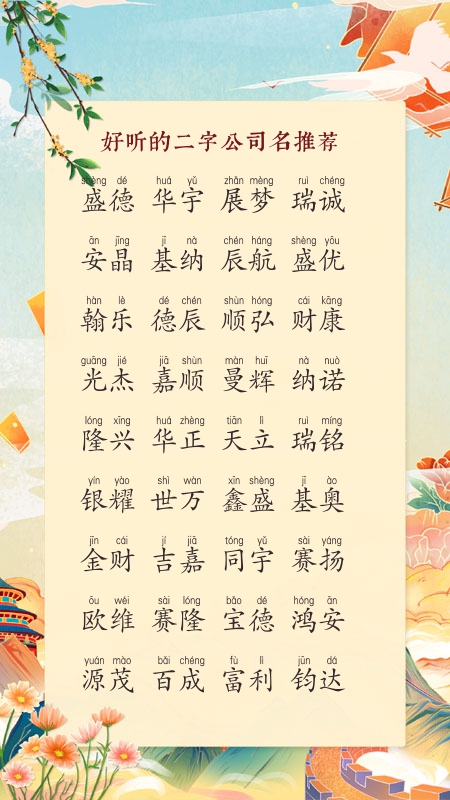 好听的二字公司名推荐
shèng dé huá yǔ zhǎn mèng ruì chéng
盛德 华宇 展梦 瑞诚
ān jīng jī nà chén háng shèng yōu
安晶 基纳 辰航 盛优
hàn lè dé chén shùn hóng cái kāng
翰乐 德辰 顺弘 财康
guāng jié jiā shùn màn huī nà nuò
光杰 嘉顺 曼辉 纳诺
lóng xīng huá zhèng tiān lì ruì míng
隆兴 华正 天立 瑞铭
yín yào shì wàn xīn shèng jī ào
银耀 世万 鑫盛 基奥
jīn cái jí jiā tóng yǔ sài yáng
金财 吉嘉 同宇 赛扬
ōu wéi sài lóng bǎo dé hóng ān
欧维 赛隆 宝德 鸿安
yuán mào bǎi chéng fù lì jūn dá
源茂 百成 富利 钧达